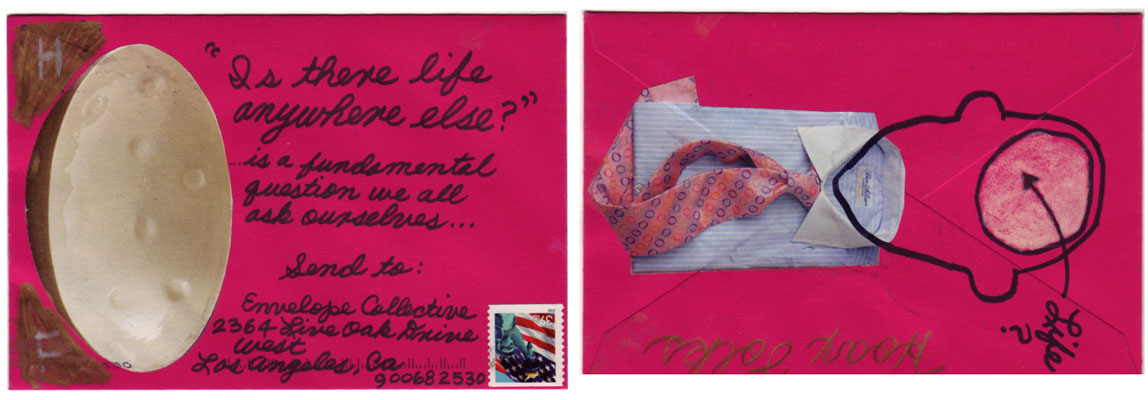 H
“Is there life
anywhere else?”
...is a fundamental
question we all
ask ourselves...
Send to:
Envelope Collective
2364 Live Oak Drive
West
Los Angeles, Ca
900682530
I
39
Life?